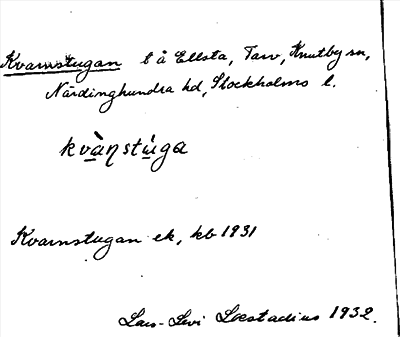 Kvarnstugan t å Ellsta, Tarv, Knutby sn,
Närdinghundra hd, Stockholms l.
kvànstúga
Kvarnstugan ek, kb 1931
Lars-Levi Læstadius 1932.